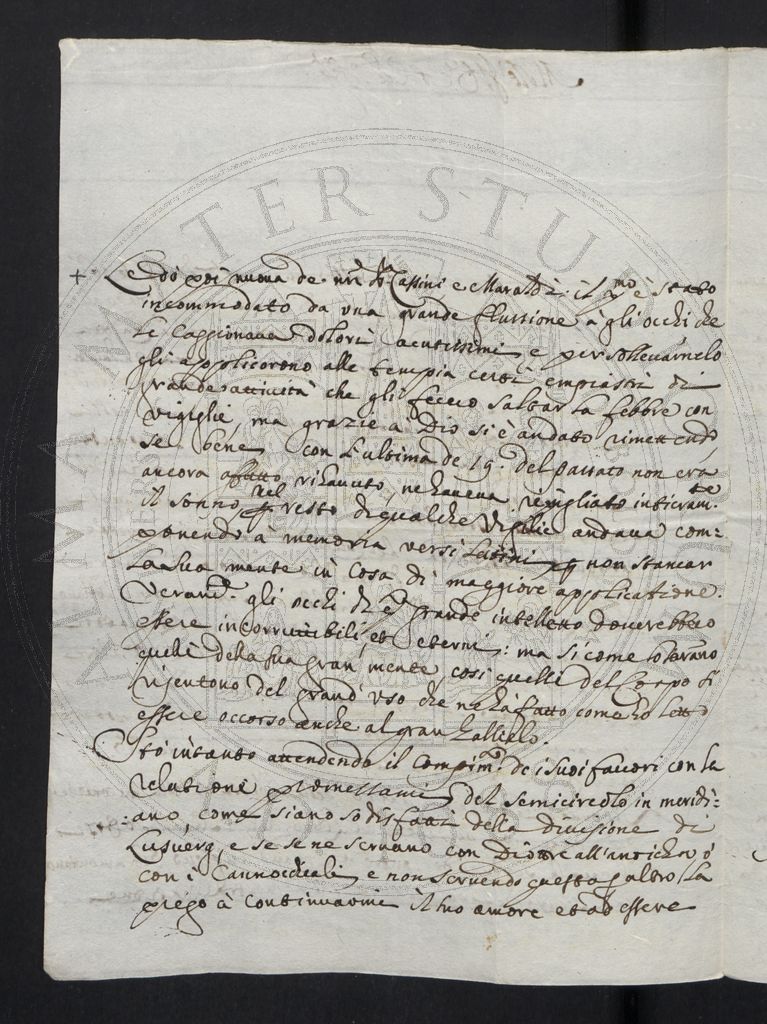 + Le dò poi nuova de nri Sri Cassini e Maraldi: il pmo è stato
incommodato da una grande flussione à gli occhi che
Le caggionava dolori acutissimi e per sollevarnelo
gli applicorono alle tempia certi empiastri di
grande attività che gli fecero saltar la febbre con
vigiglie, ma grazie a Dio si è andato rimettendo,
se bene con l'ultima de 19. del passato non era
ancora affatto rihavuto, ne haveva ripigliato intieramte
il sonno, nel resto di qualche vigilie andava com:
ponendo à memoria versi Latini p non stancar
la sua mente in cosa di maggiore applicatione.
Veramte gli occhi di q grande intelletto dovrebbero
essere incorruttibili, et eterni: ma si come lo saranno
quelli della sua gran mente, così quelli del Corpo si
risentono del grand'uso che ne hà fatto come hò letto
essere occorso anche al gran Galileo.
Stò intanto attendendo il Compimto de i suoi favori con la
relatione promessami del semicircolo in meridi:
:ano come siano sodisfatti della divisione di
Lusuerg, e se se ne servano con Diotre all'antica, ò
con i Cannocchiali, e non servendo questa p altro, la
prego à continuarmi il suo amore et ad essere